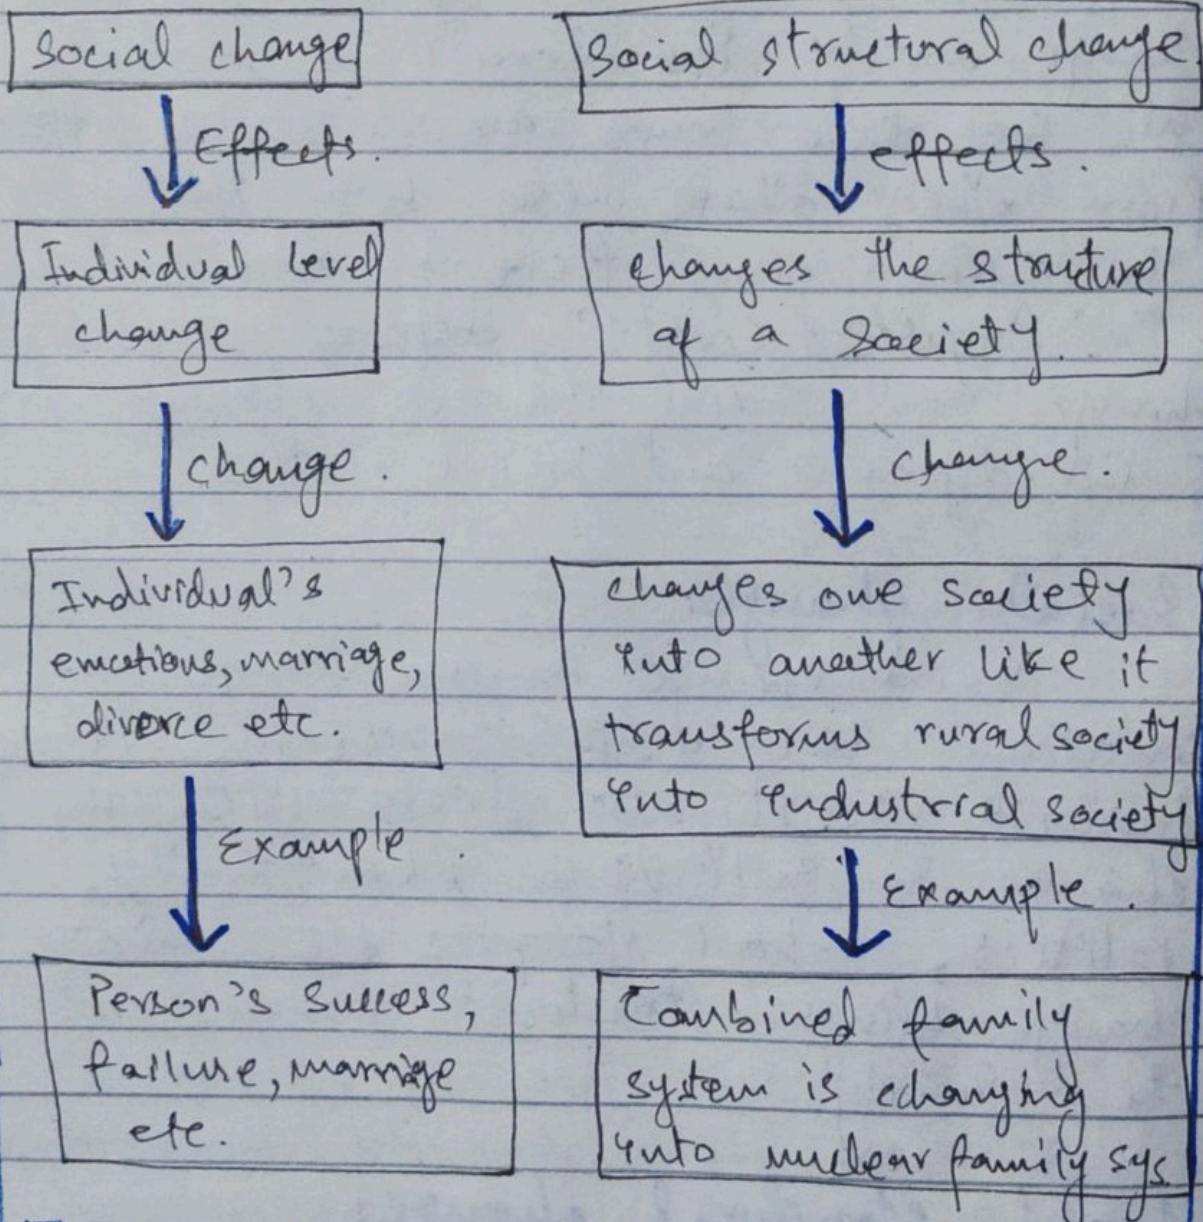 Social change
Effects.
Individual level
change
change.
Individual's
emotions, marriage,
divorce etc.
Example
Person's Success,
failure, marrige
etc.
Social structural change
effects.
changes the structure
of a Society.
change.
changes one society
into another like it
transforms rural society
into industrial society
Example.
Combined family
system is changing
into nuclear family sys.